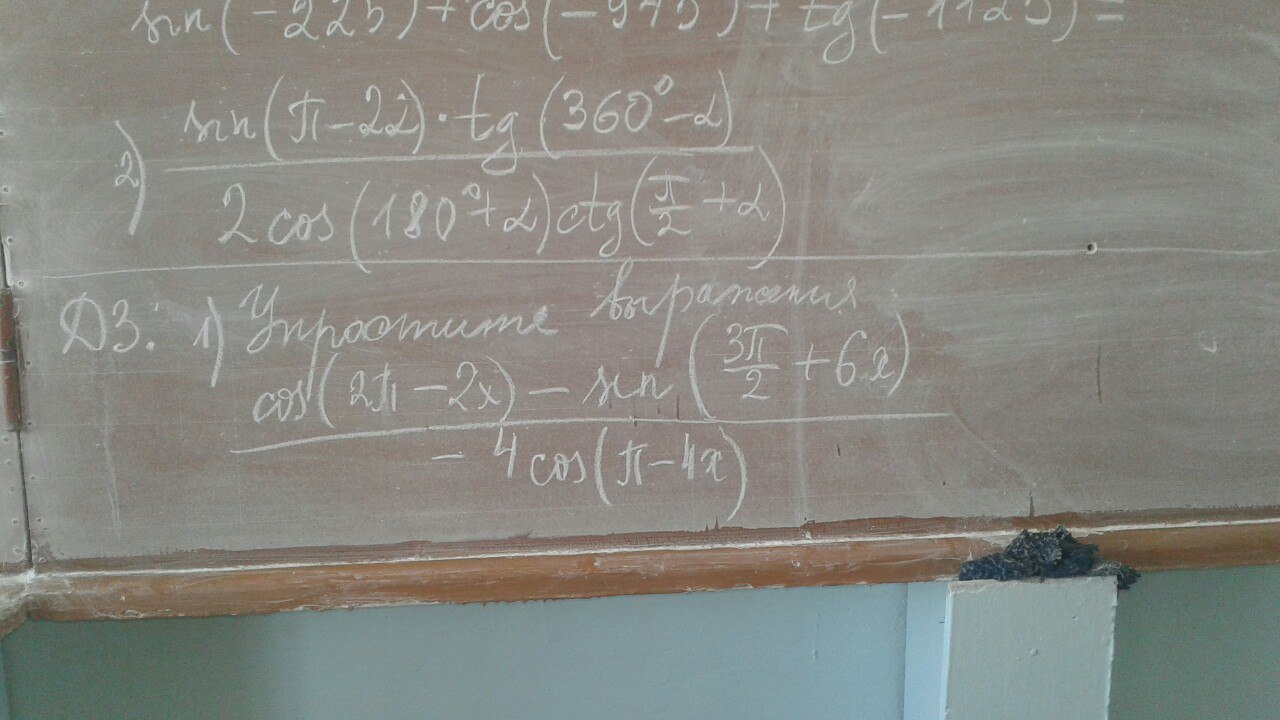 sin(-225)+cos(-945)+tg(-1125)=
2) sin(π-2α)·tg(360°-α)
2cos(180°+α)ctg(π/2+α)
ДЗ: 1) Упростите выражения
cos(2π-2x)-sin(3π/2+6x)
-4cos(π-4x)